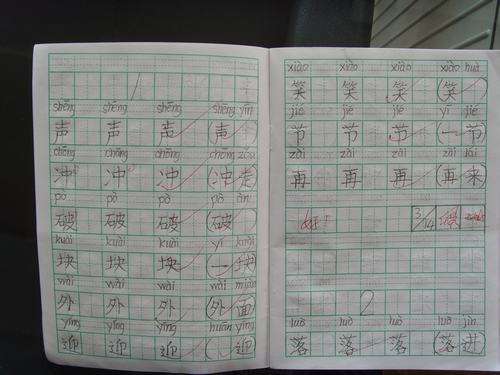 1
shēng shēng shēng shēng yīn
声 声 声 (声 )
chōng chōng chōng chōng zǒu
冲 冲 冲 (冲走)
pò pò pò pò
破 破 破 (破 )
kuài kuài kuài yí kuài
块 块 块 (一块)
wài wài wài wài miàn
外 外 外 (外面)
yíng yíng yíng huān yíng
迎 迎 迎 ( 迎)
xiào xiào xiào xiào huà
笑 笑 笑 (笑 )
jié jié jié yì jié
节 节 节 (一节)
zài zài zài zài lái
再 再 再 (再来)
好! 3/14
2
luò luò luò luò jìn
落 落 落 (落进)